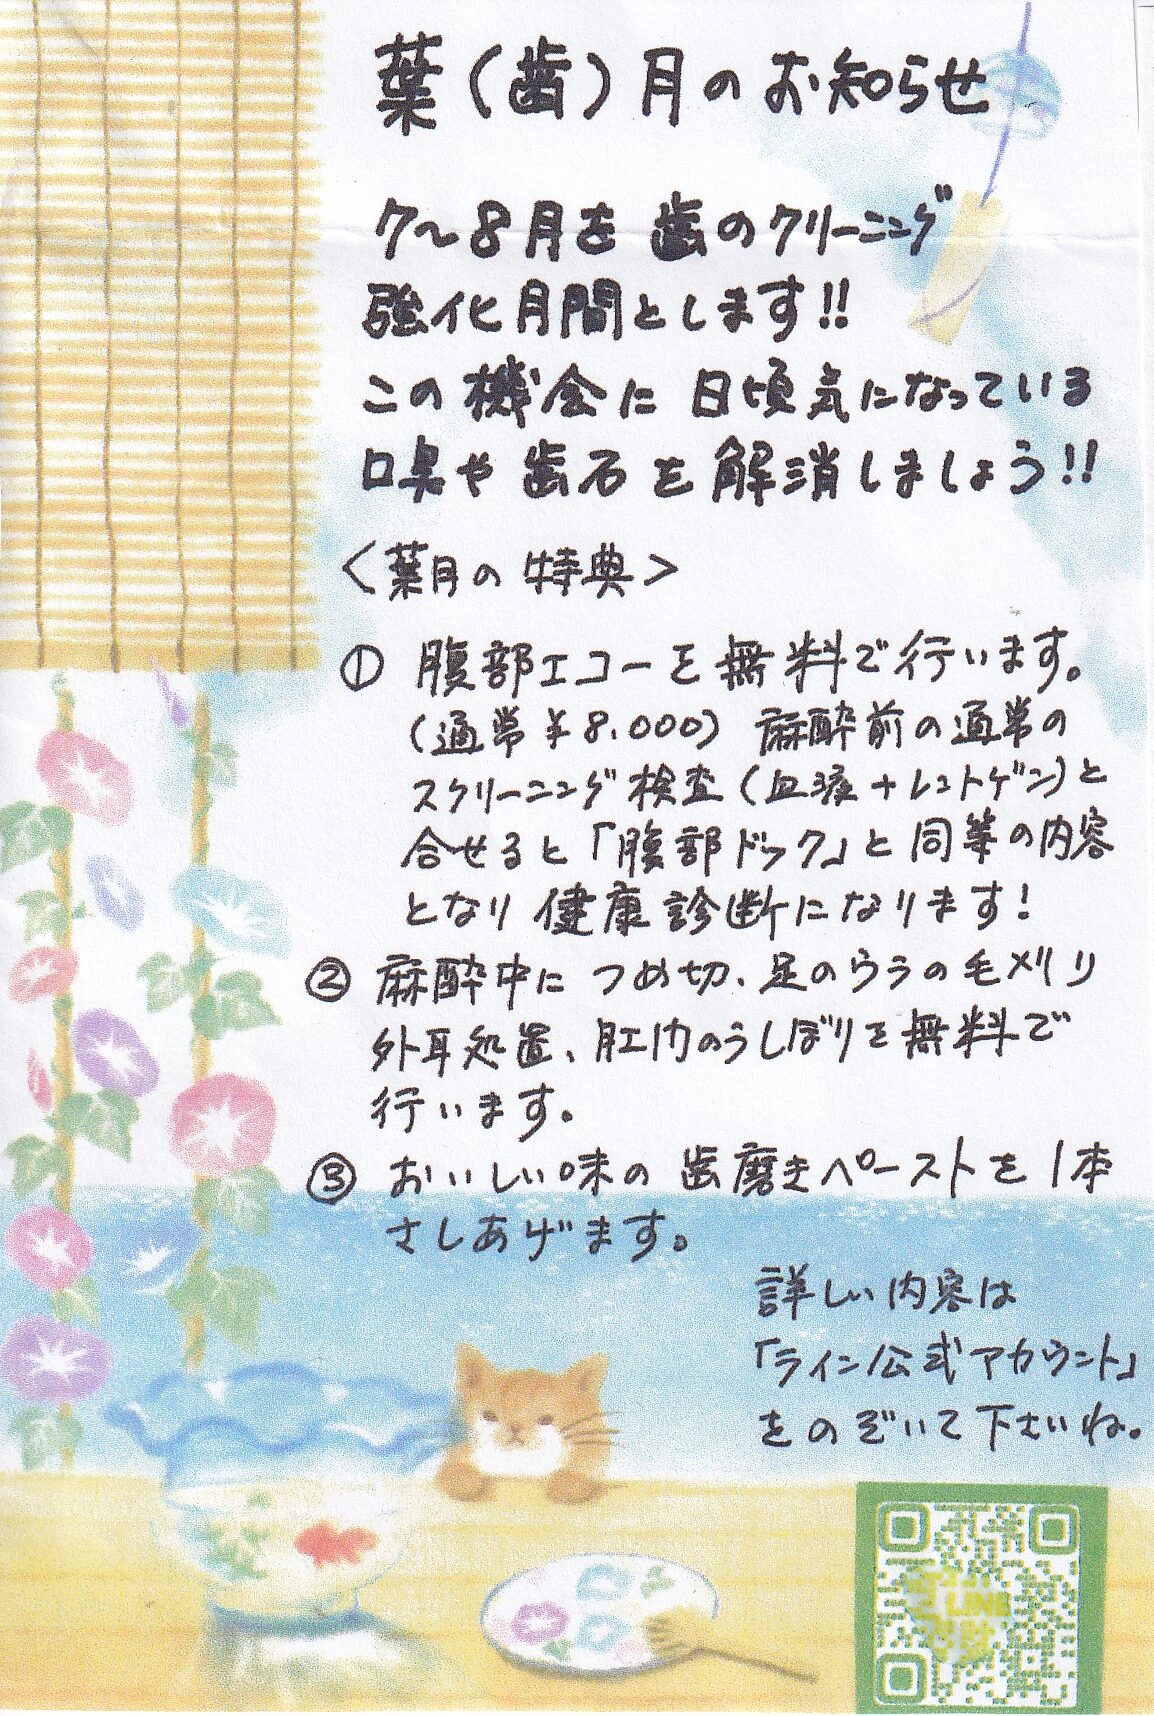 葉（歯）月のお知らせ
7～8月を歯のクリーニング
強化月間とします!!
この機会に日頃気になっている
口臭や歯石を解消しましょう!!
＜葉月の特典＞
① 腹部エコーを無料で行います。
（通常￥8.000）麻酔前の通常の
スクリーニング検査（血液＋レントゲン）と
合せると「腹部ドック」と同等の内容
となり健康診断になります!
② 麻酔中に つめ切、足のウラの毛刈り
外耳処置、肛門のうしぼりを無料で
行います。
③ おいしい味の歯磨きペーストを1本
さしあげます。
詳しい内容は
「ライン公式アカウント」
をのぞいて下さいね。
LINE